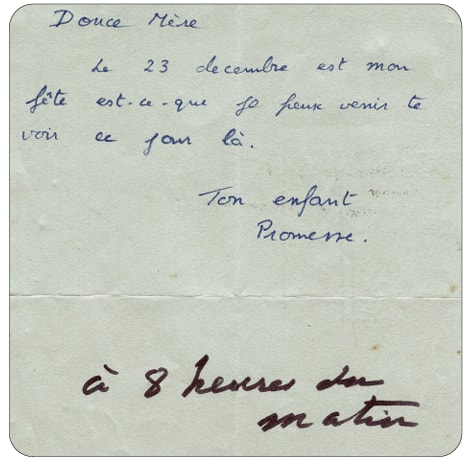 Douce Mère
Le 23 decembre est mon
fête est-ce-que je peux venir te
voir ce jour là.
Ton enfant
Promesse.
à 8 heures du
matin